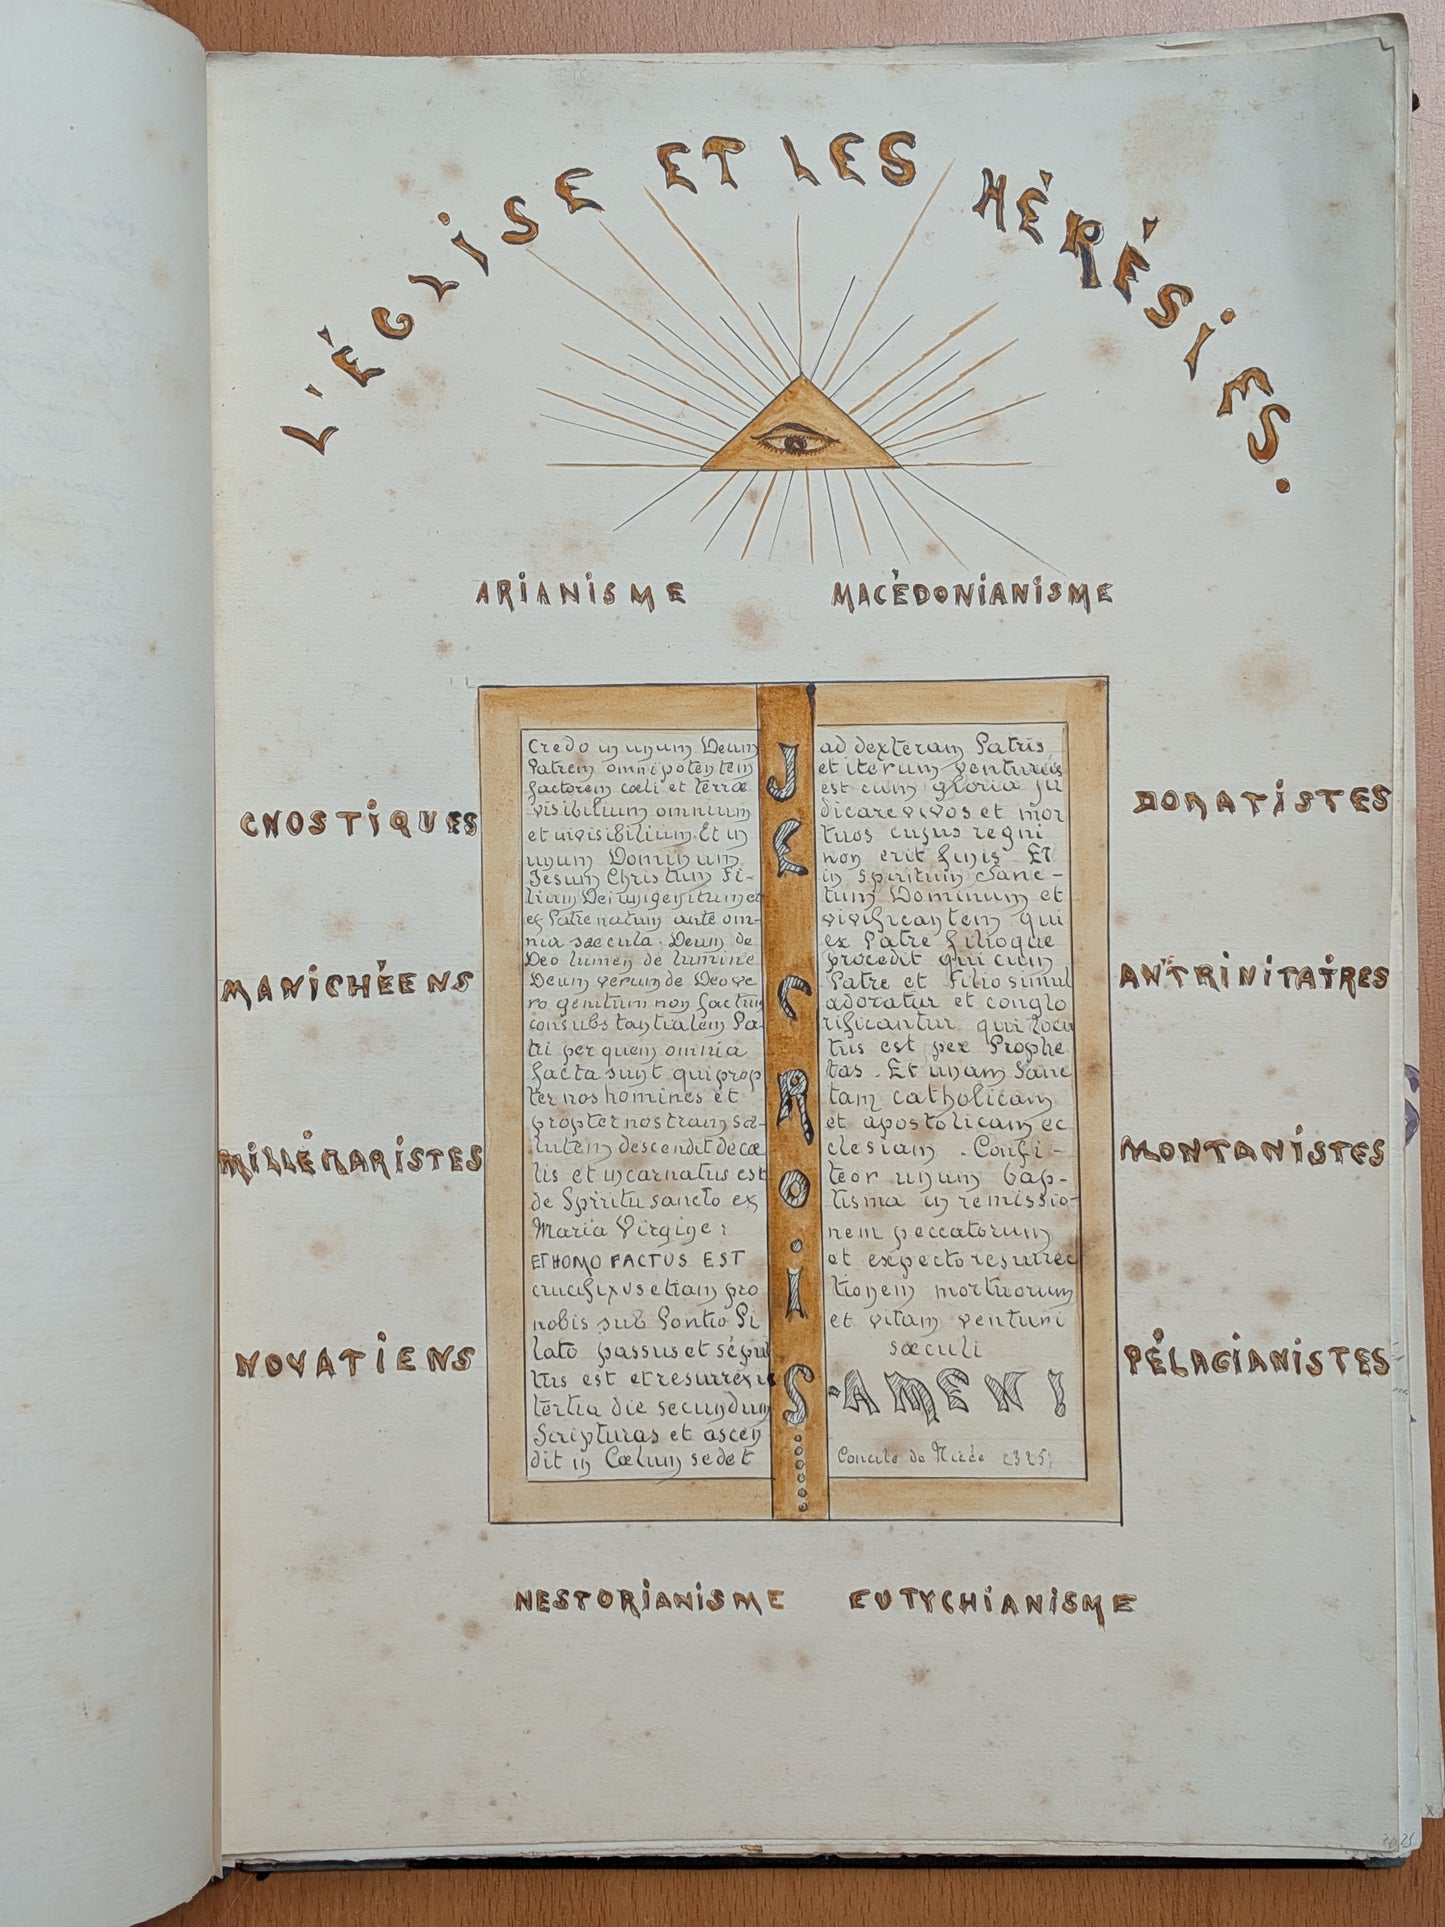 L'ÉGLISE ET LES HÉRÉSIES.
ARIANISME MACÉDONIANISME
GNOSTIQUES
MANICHÉENS
MILLÉNARISTES
NOVATIENS
Credo in unum Deum
Patrem omnipotentem
factorem cœli et terræ
visibilium omnium
et invisibilium. Et in
unum Dominum
Jesum Christum Fi-
lium Dei unigenitum et
ex Patre natum ante om-
nia sæcula. Deum de
Deo lumen de lumine
Deum verum de Deo ve
ro genitum non factum
consubstantialem Pa-
tri per quem omnia
facta sunt qui prop
ter nos homines et
propter nostram sa-
lutem descendit de cœ
lis et incarnatus est
de Spiritu sancto ex
Maria Virgine :
ET HOMO FACTUS EST
crucifixus etiam pro
nobis sub Pontio Pi
lato passus et sépul
tus est et resurrexit
tertia die secundum
Scripturas et ascen
dit in Cœlum sedet
JE CROIS
ad dexteram Patris
et iterum venturus
est cum gloria ju
dicare vivos et mor
tuos cujus regni
non erit finis Et
in spiritum Sanc-
tum Dominum et
vivificantem qui
ex Patre filioque
procedit qui cum
Patre et Filio simul
adoratur et conglo
rificantur qui locu
tus est per Prophe
tas. Et unam Sanc
tam catholicam
et apostolicam ec
clesiam. Confi-
teor unum bap-
tisma in remissio-
nem peccatorum
et expecto resurrec
tionem mortuorum
et vitam venturi
sæculi
AMEN !
Concile de Nicée (325)
DONATISTES
ANTRINITAIRES
MONTANISTES
PÉLAGIANISTES
NESTORIANISME EUTYCHIANISME